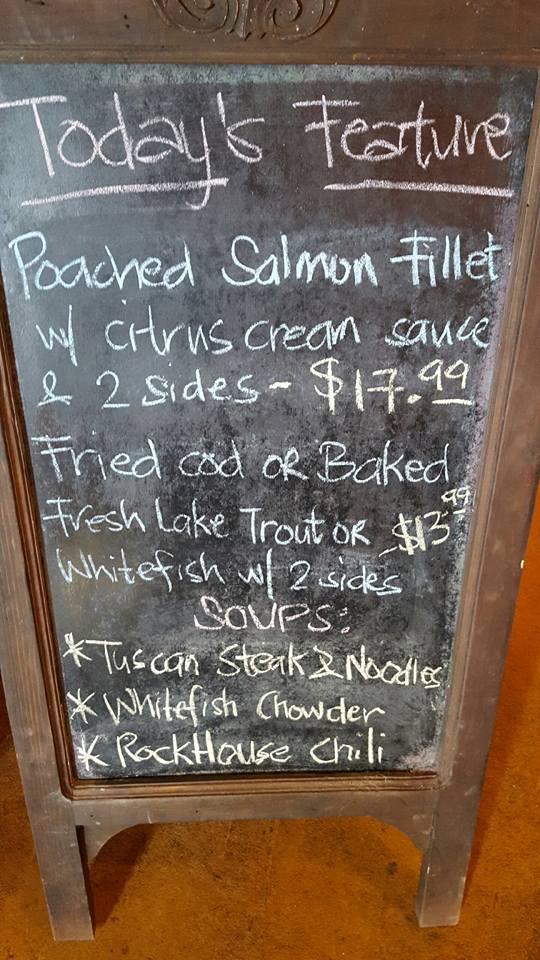 Today's Feature
Poached Salmon Fillet
w/ citrus cream sauce
& 2 sides - $17.99
Fried cod or Baked
Fresh Lake Trout or $13.99
Whitefish w/ 2 sides
SOUPS:
* Tuscan Steak & Noodles
* Whitefish Chowder
* RockHouse Chili